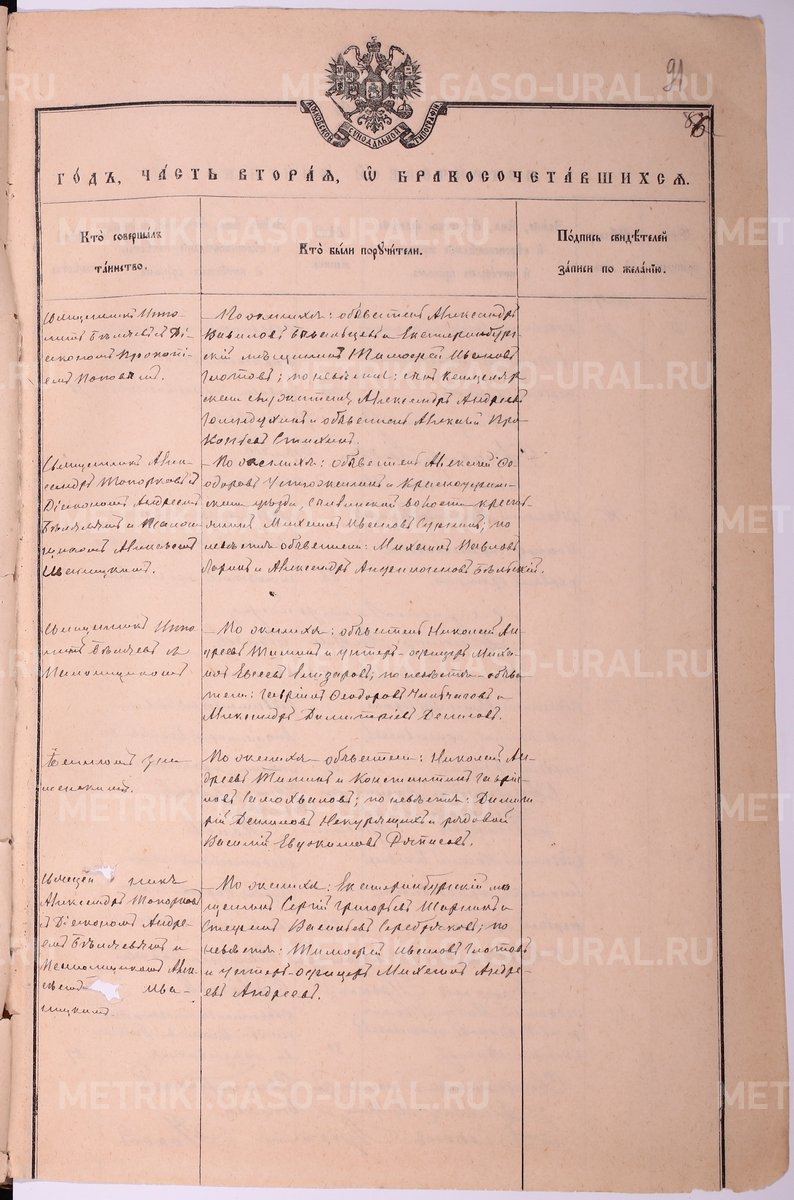 91
86
МОСКОВСКОЙ СѴНОДАЛЬНОЙ ТИПОГРАФІИ
ГО́ДЪ, ЧА́СТЬ ВТОРА́Я, Ѿ БРАКОСОЧЕТА́ВШИХСЯ.
Кто̀ соверша́лъ
та́инство.
Кто̀ бы́ли поручи́тели.
По́дпись свидѣ́телей
за́писи по жела́нію.
Священникъ Иппо-
литъ Бѣляевъ съ Ді-
акономъ Прокопі-
емъ Поповымъ.
По женихѣ: обыватели Александръ
Вавиловъ и Екатеринбург-
скій мѣщанинъ Тимоѳей Ивановъ
Глотовъ; по невѣстѣ: сынъ Канцеляр-
скаго служителя Александръ Андреевъ
и обыватель Алексѣй Про-
копьевъ
Священникъ Алек-
сандръ Топорковъ съ
Діакономъ Андреемъ
Бѣляевымъ и Псалом-
щикомъ Алексѣемъ
Иваницкимъ.
По женихѣ: обыватель Алексѣй Ѳе-
доровъ Устюжанинъ и Красноуфим-
скаго уѣзда, волости кресть-
янинъ Михаилъ Ивановъ по
невѣстѣ обыватели: Михаилъ Павловъ
Ларинъ и Александръ
Священникъ Иппо-
литъ Бѣляевъ съ
Псаломщикомъ
По женихѣ: обыватель Николай Ан-
дреевъ и унтеръ-офицеръ Михаи-
лъ Евсеевъ Елизаровъ; по невѣстѣ – обыва-
тели: Гавріилъ Ѳеодоровъ и
Александръ Димитріевъ Денисовъ.
Тѣмъ же
По женихѣ – обыватели: Николай Ан-
дреевъ и Константинъ Гаврі-
ловъ Самохваловъ; по невѣстѣ: Димит-
рій Денисовъ Некурящихъ и рядовой
Василій Евдокимовъ
Священникъ
Александръ Топорковъ
съ Діакономъ Андре-
емъ Бѣляевымъ и
Псаломщикомъ Алек-
сѣемъ Ива-
ницкимъ.
По женихѣ: Екатеринбургскій мѣ-
щанинъ Сергій Григорьевъ и
Стефанъ Васильевъ Серебряковъ; по
невѣстѣ: Тимоѳей Ивановъ Глотовъ
и унтеръ-офицеръ Михаилъ Андре-
евъ Андреевъ.
METRIK.GASO-URAL.RU